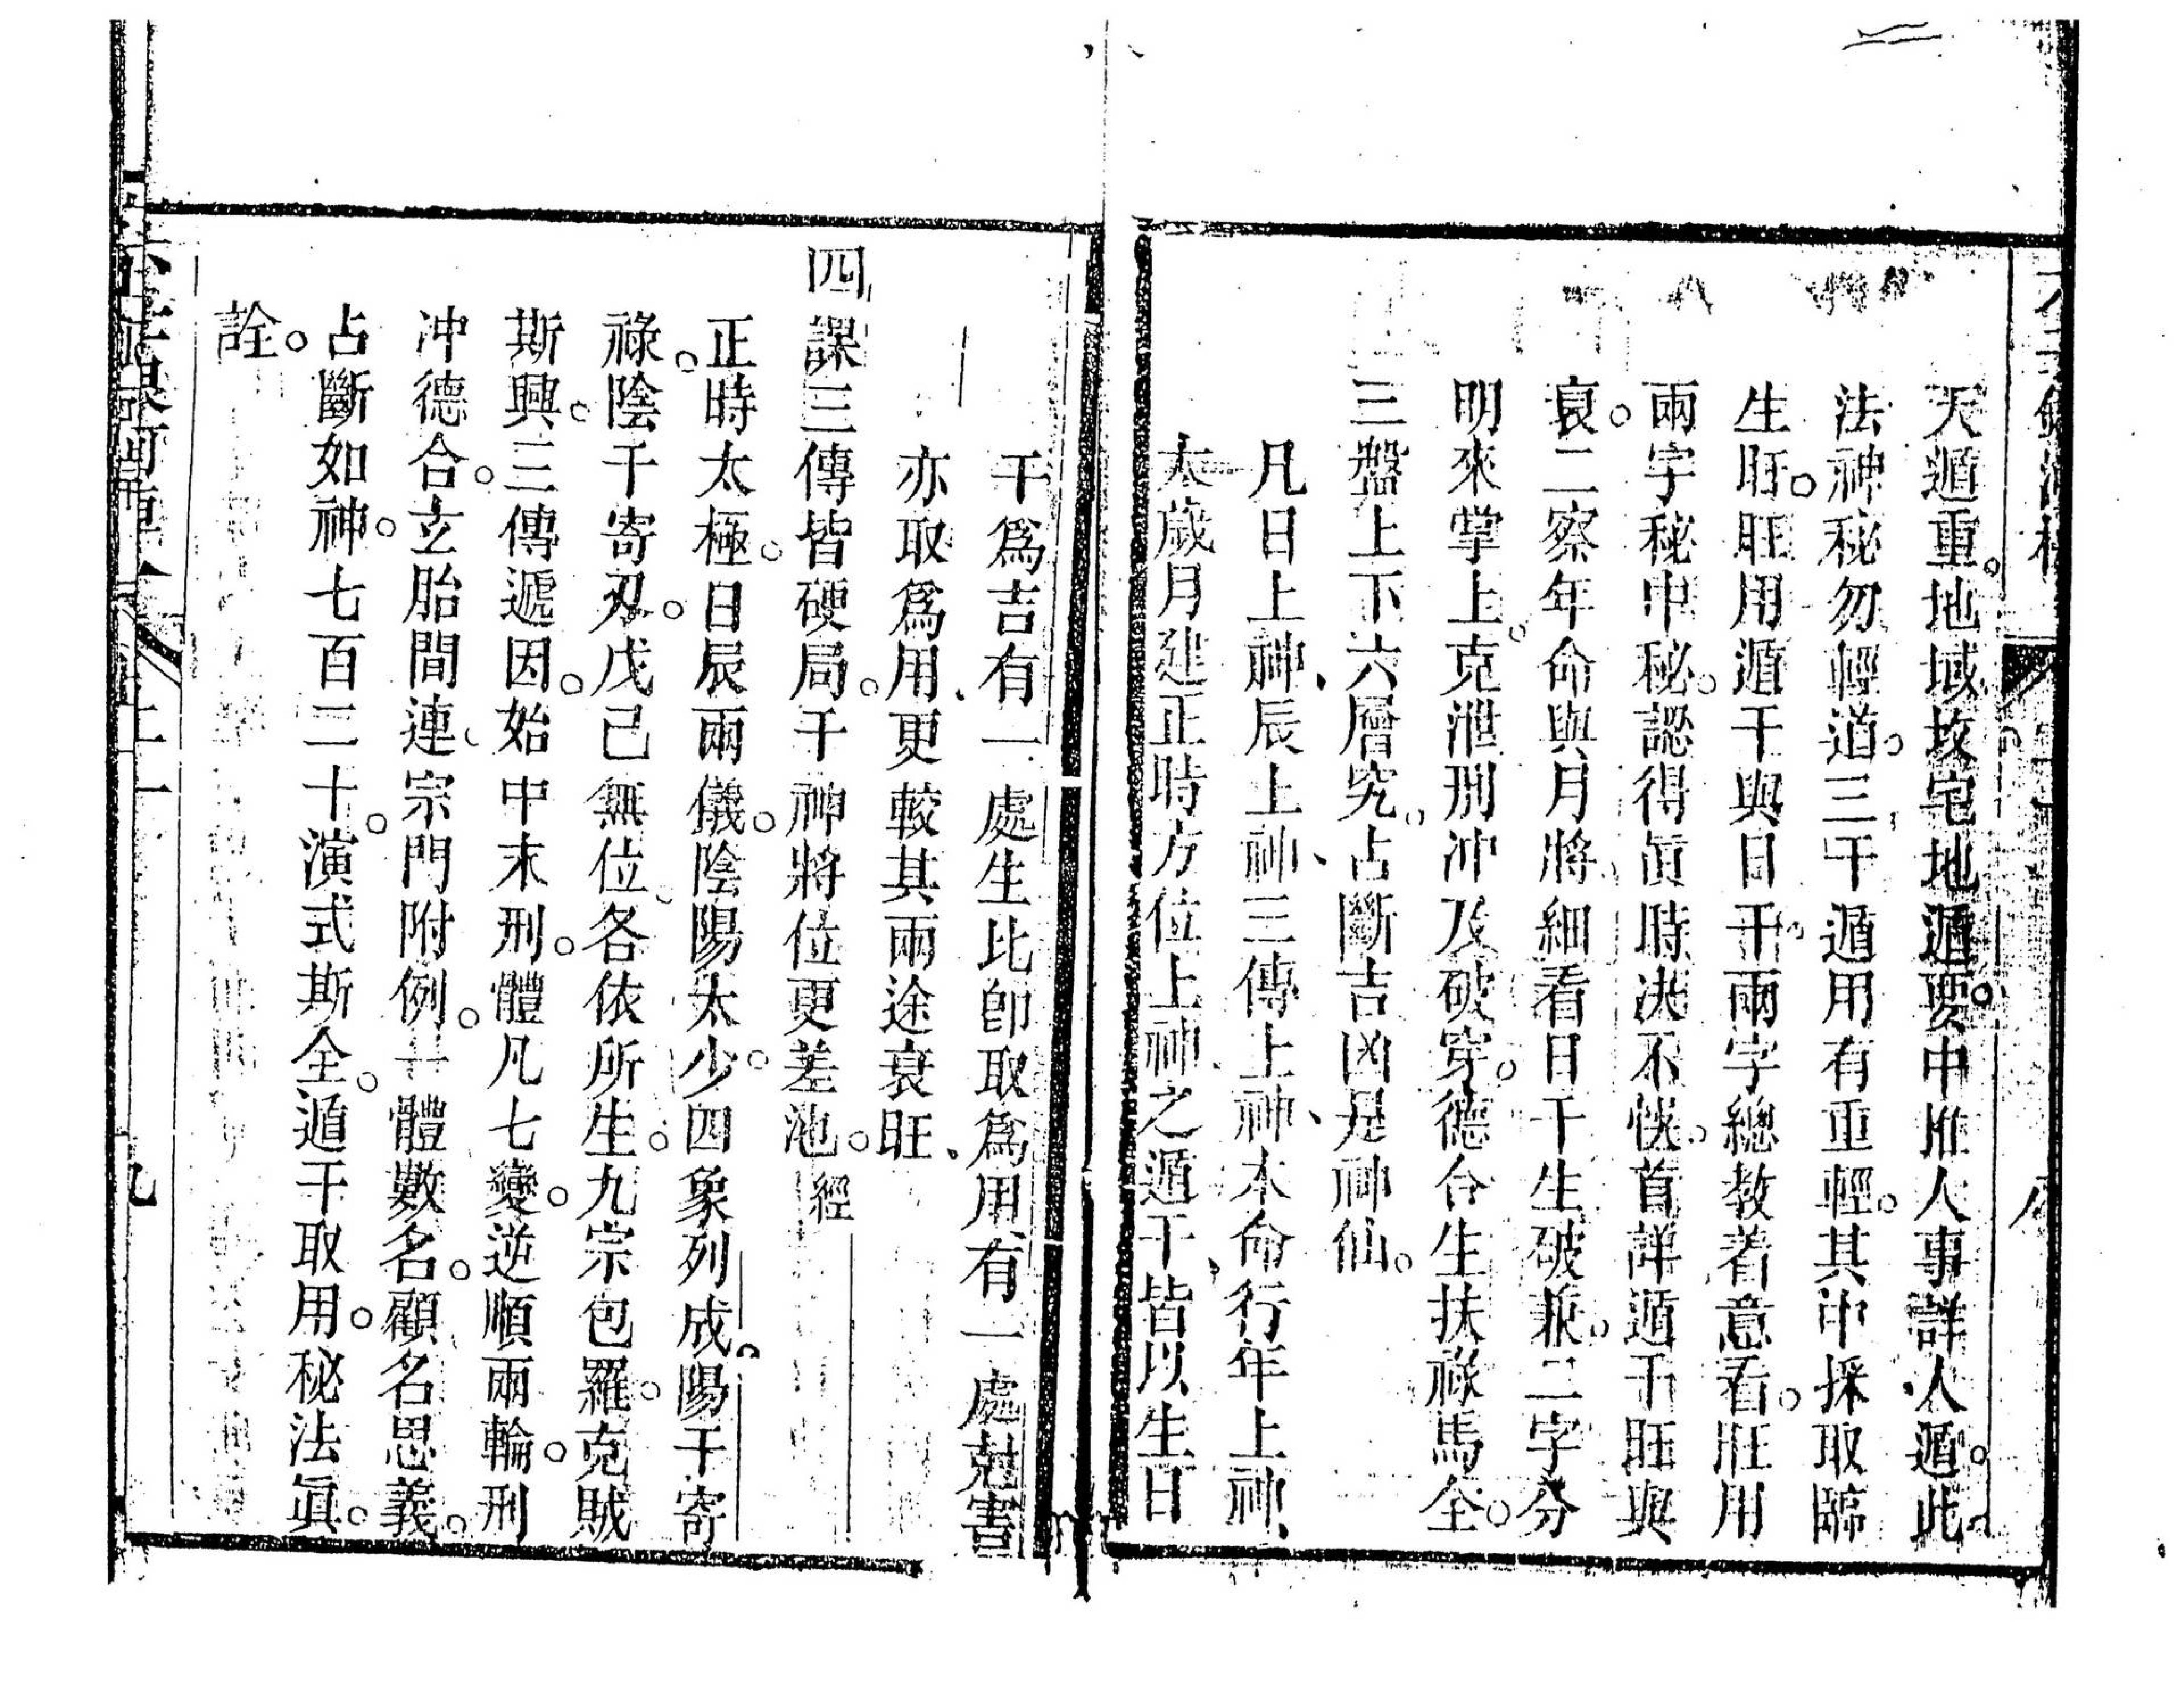 天遁重。地域坟宅地遁要。中推人事詳人遁。此
法神秘勿輕道。三干遁用有重輕。其中採取臨
生旺。旺用遁干與日干。兩字總教着意看。旺用
兩字秘中秘。認得眞時决不恍。首詳遁干旺與
衰。二察年命與月將。細看日干生破兼。二字分
明來掌上。克泄刑冲及破穿。德合生扶祿馬全。
三盤上下六層究。占斷吉凶是神仙。
凡日上神、辰上神、三傳上神、本命行年上神、
太歲月建正時方位上神之遁干、皆以生日
干爲吉有一處生比卽取爲用、有一處尅害
亦取爲用、更較其兩途衰旺、
四課三傳皆硬局。干神將位更差池。經
正時太極。日辰兩儀。陰陽太少。四象列成。陽干寄
祿。陰干寄刃。戊己無位。各依所生。九宗包羅。克賊
斯興。三傳遞因。始中末刑。體凡七變。逆順兩輪。刑
冲德合。玄胎間連。宗門附例。一體數名。顧名思義。
占斷如神。七百二十。演式斯全。遁干取用。秘法眞。
詮。